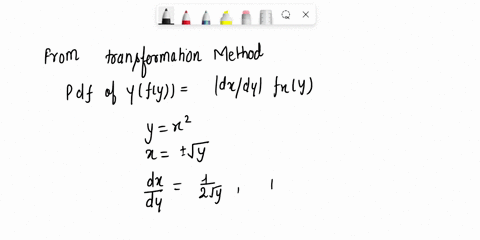 From transformation Method
Pdf of y(f(y)) = |dx/dy| fx(y)
y = x²
x = ±√y
dx/dy = 1/2√y , 1